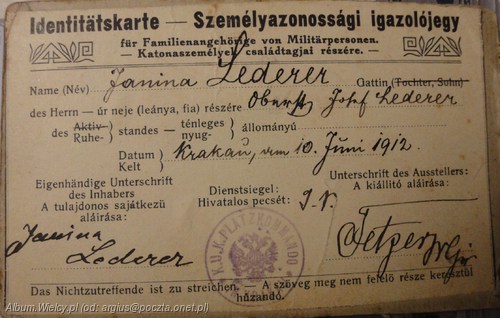 Identitätskarte — Személyazonossági igazolójegy
für Familienangehörige von Militärpersonen.
- Katonaszemélyek családtagjai részére. -
Name (Név) Janina Lederer Gattin (Tochter, Sohn)
des Herrn — úr neje (leánya, fia) részére Oberst Josef Lederer
des Aktiv- Ruhe- } standes — { tényleges nyug- } állományú
Datum Kelt } Krakau, am 10. Juni 1912.
Eigenhändige Unterschrift des Inhabers
A tulajdonos sajátkezü aláirása:
Janina Lederer
Dienstsiegel:
Hivatalos pecsét:
K.U.K. PLATZKOMMANDO
Unterschrift des Ausstellers:
A kiállitó aláirása:
Das Nichtzutreffende ist zu streichen. — A szöveg meg nem felelő része keresztül húzandó.
Album.Wielcy.pl (od: argjus@poczta.onet.pl)